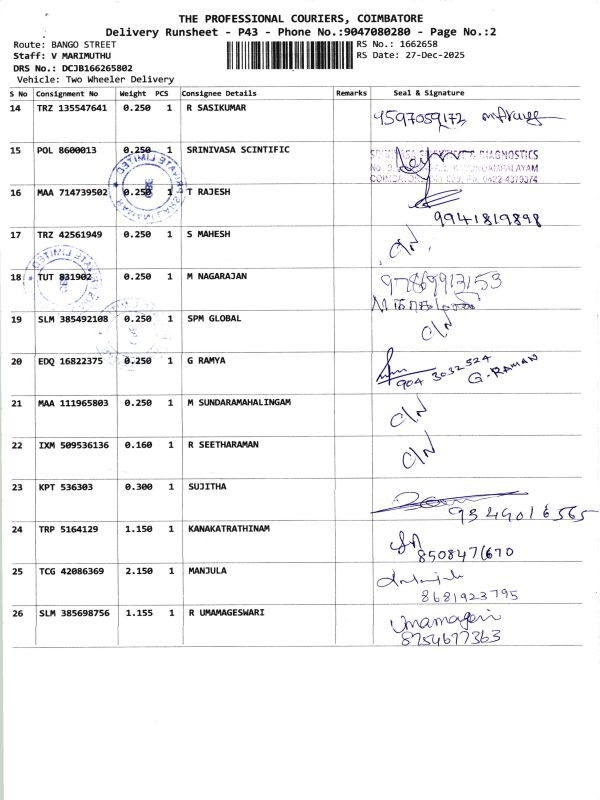 THE PROFESSIONAL COURIERS, COIMBATORE
Delivery Runsheet - P43 - Phone No.:9047080280 - Page No.:2
Route: BANGO STREET RS No.: 1662658
Staff: V MARIMUTHU RS Date: 27-Dec-2025
DRS No.: DCJB166265802
Vehicle: Two Wheeler Delivery
S No Consignment No Weight PCS Consignee Details Remarks Seal & Signature
14 TRZ 135547641 0.250 1 R SASIKUMAR 9597059172
15 POL 8600013 0.250 1 SRINIVASA SCINTIFIC & DIAGNOSTICS
16 MAA 714739502 0.250 1 T RAJESH 9941819898
17 TRZ 42561949 0.250 1 S MAHESH
18 TUT 831902 0.250 1 M NAGARAJAN 97869913153
19 SLM 385492108 0.250 1 SPM GLOBAL
20 EDQ 16822375 0.250 1 G RAMYA 904 3032524 G. RAMAN
21 MAA 111965803 0.250 1 M SUNDARAMAHALINGAM
22 IXM 509536136 0.160 1 R SEETHARAMAN
23 KPT 536303 0.300 1 SUJITHA 9344016565
24 TRP 5164129 1.150 1 KANAKATRATHINAM 8508471670
25 TCG 42086369 2.150 1 MANJULA 8681923795
26 SLM 385698756 1.155 1 R UMAMAGESWARI Umamageri
8754677363